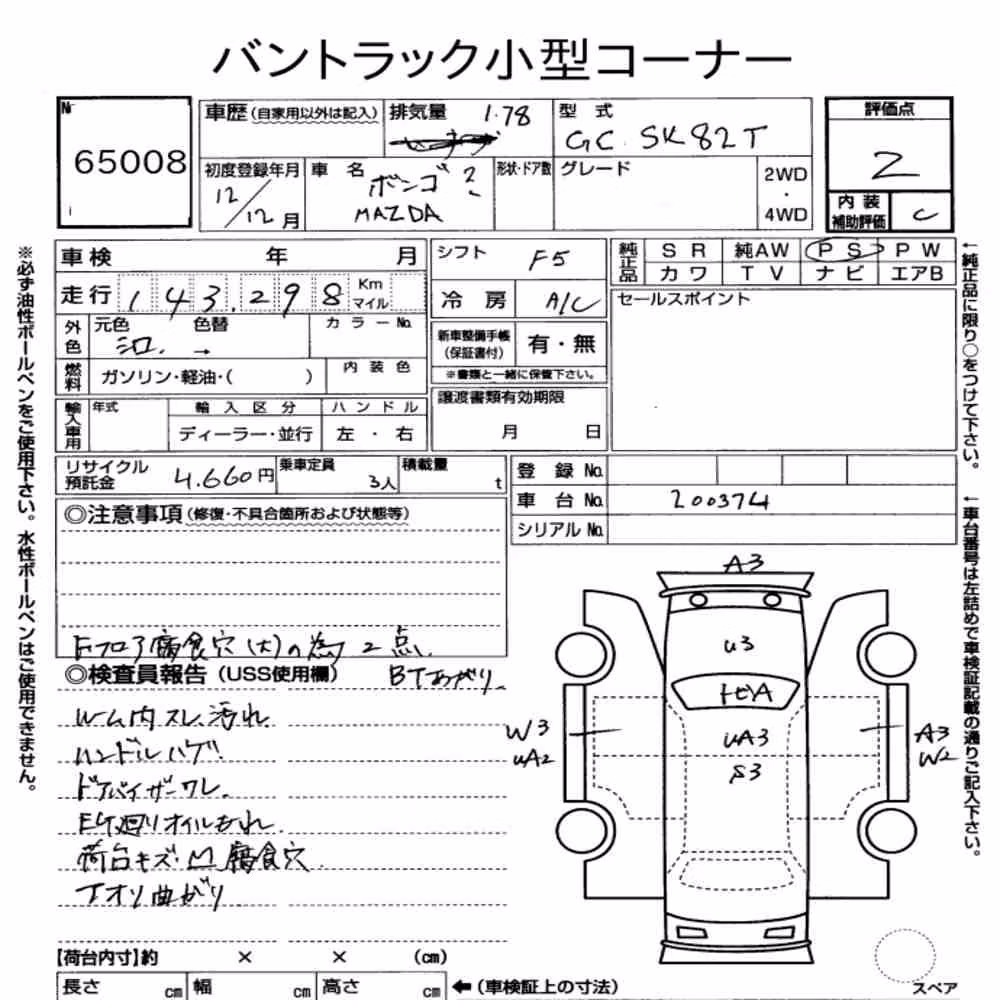 バントラック小型コーナー
№
65008
車歴(自家用以外は記入)
排気量
1.78
型 式
GC. SK82T
評価点
2
初度登録年月
12/12月
車 名
ボンゴ
MAZDA
形状・ドア数
グレード
2WD
・
4WD
内 装
補助評価
C
車検 年 月
シフト
F5
純正品
S R 純AW P S P W
カ ワ T V ナ ビ エアB
走行 143,298 Km
マイル
冷 房
A/C
セールスポイント
外色
元色 色替
カ ラ ー №
シロ. →
新車整備手帳
(保証書付)
有・無
※書類と一緒に保管下さい。
燃料
ガソリン・軽油・( )
内 装 色
輸入車用
年式
輸 入 区 分
ハ ン ド ル
ディーラー・並行
左 ・ 右
譲渡書類有効期限
月 日
リサイクル
預託金
4.660円
乗車定員
3人
積載量
t
登 録 №
車 台 №
200374
シリアル №
◎注意事項(修復・不具合箇所および状態等)
Fフロア腐食穴(大)の為 2点.
◎検査員報告(USS使用欄)
BTあがり.
ルーム内スレ.汚れ
ハンドルハゲ
ドアバイザーワレ.
Eg廻りオイルもれ.
荷台キズ.凹 腐食穴.
アオリ曲がり.
A3
U3
トビA
UA3
S3
W3
UA2
A3
W2
【荷台内寸】約 × × (cm)
長さ cm
幅 cm
高さ cm
←(車検証上の寸法)
スペア
※必ず油性ボールペンをご使用下さい。水性ボールペンはご使用できません。
←純正品に限り○をつけて下さい。
←車台番号は左詰めで車検証記載の通りご記入下さい。